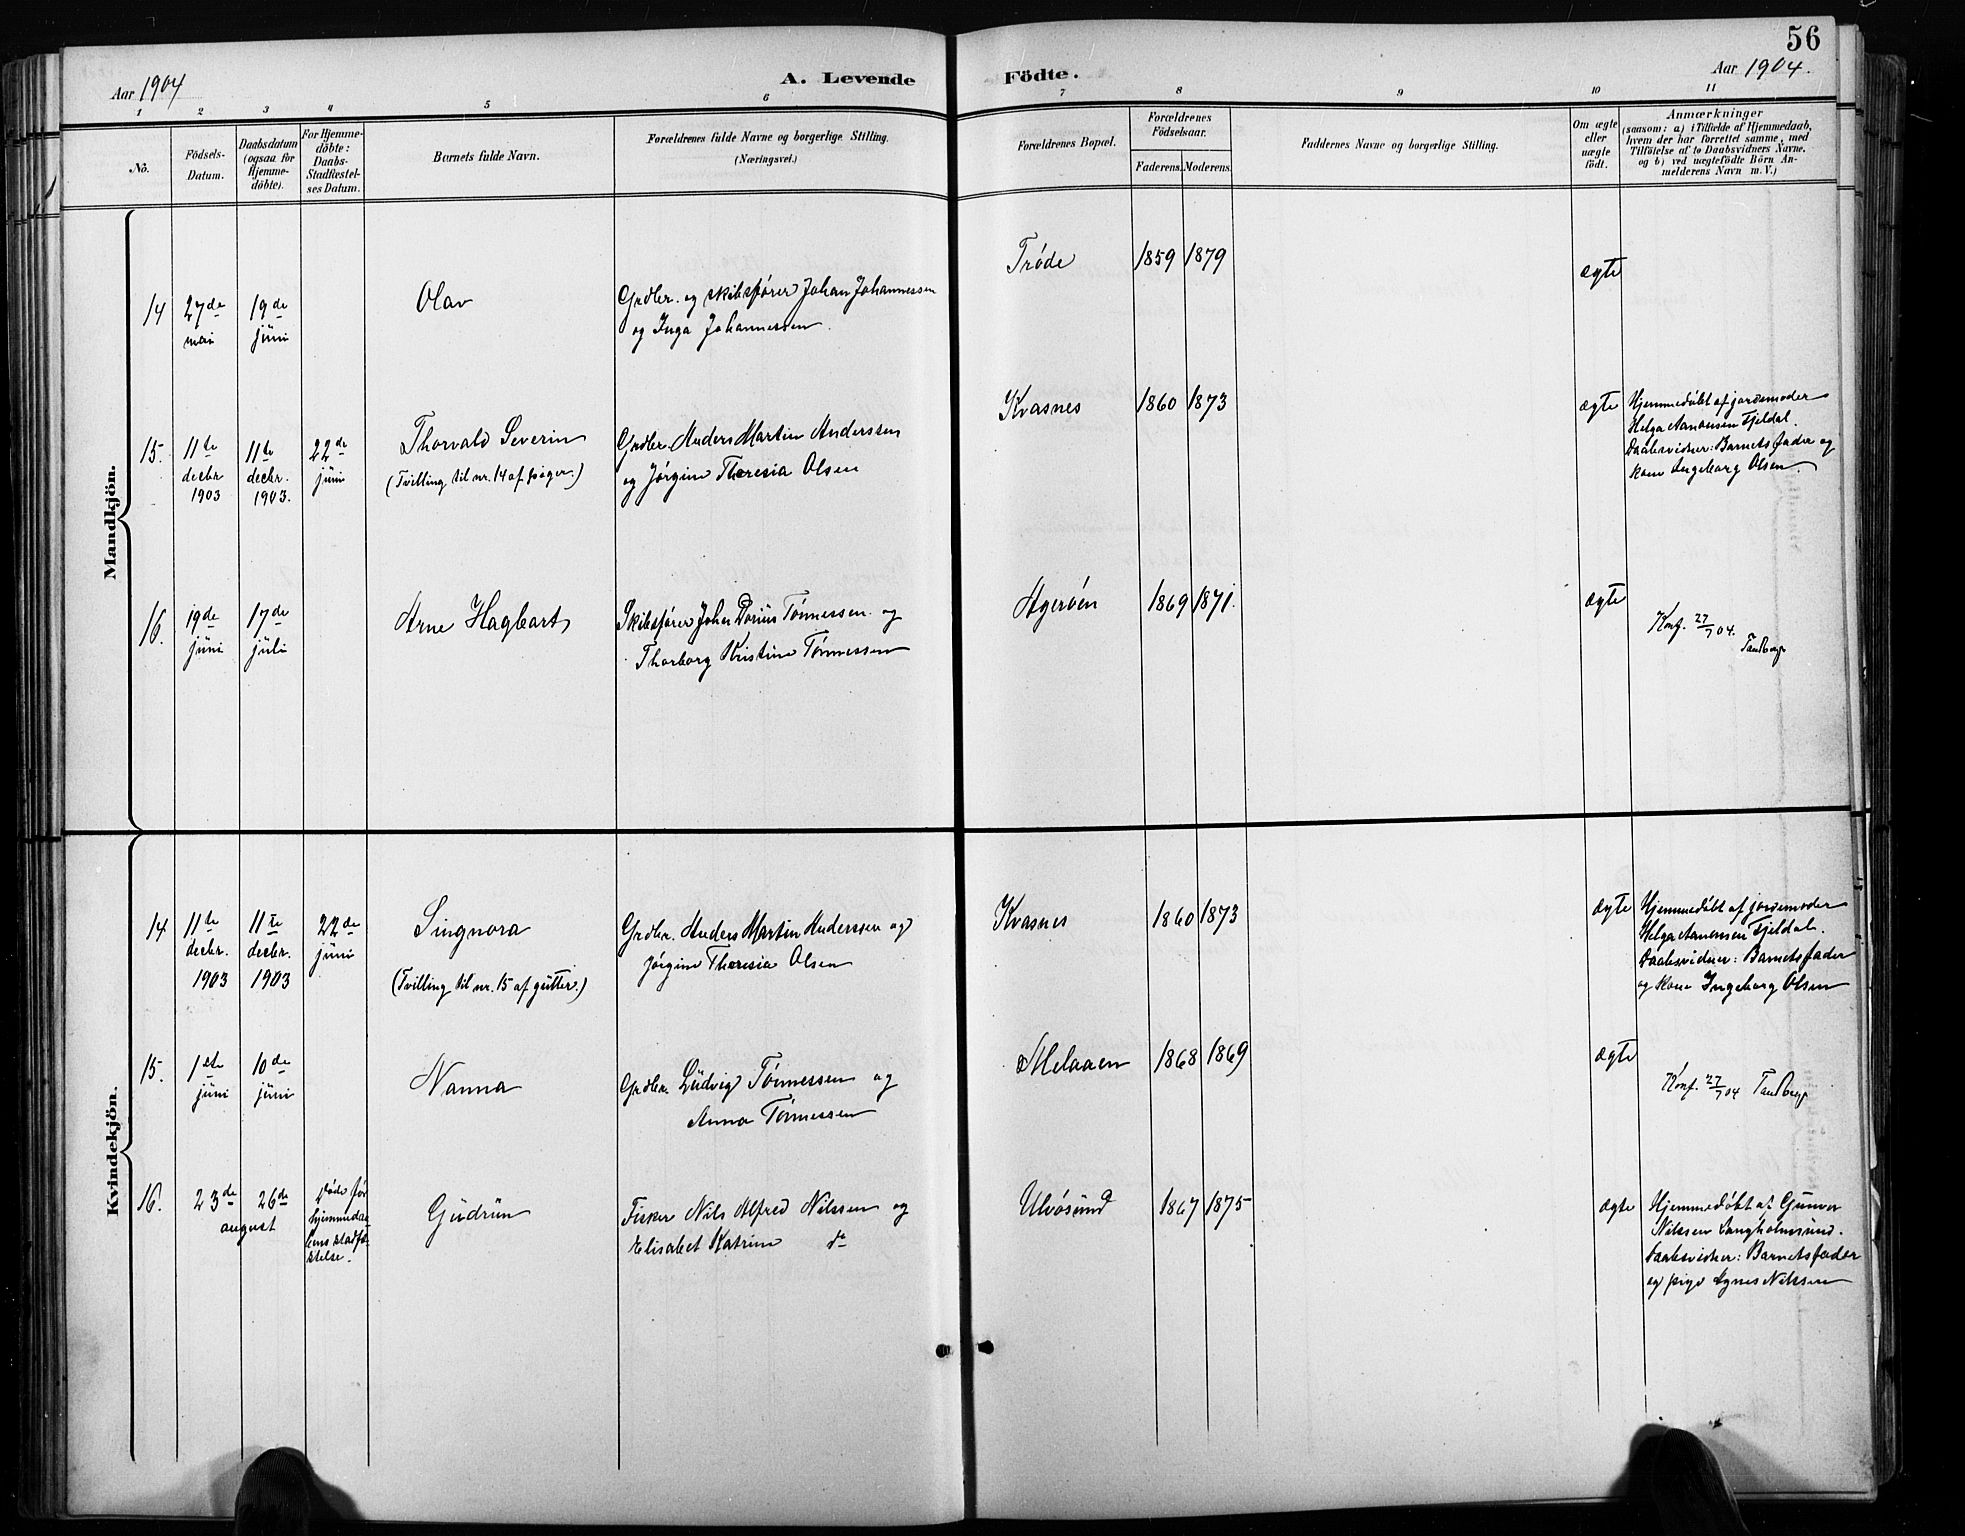 56
Aar 1904
A. Levende
Födte.
Aar 1904.
1 2 3 4 5 6 7 8 9 10 11
No.
Födsels-
Datum.
Daabsdatum
(ogsaa for
Hjemme-
döbte).
For Hjemme-
döbte:
Daabs-
Stadfæstel-
ses Datum.
Barnets fulde Navn.
Forældrenes fulde Navne og borgerlige Stilling.
(Næringsvei.)
Forældrenes Bopæl.
Forældrenes
Födselsaar.
Faderens.
Moderens.
Faddernes Navne og borgerlige Stilling.
Om ægte
eller
uægte
födt.
Anmærkninger
(saasom: a) i Tilfælde af Hjemmedaab,
hvem der har forrettet samme, med
Tilföielse af to Daabsvidners Navne,
og b) ved uægtefödte Börn An-
melderens Navn m. V.)
Mandkjön.
14
27de
mai
19de
juni
Olav
Grdbr. og skibsfører Johan Johannessen
og Inga Johannessen.
Trøde
1859
1879
ægte
15.
11te
decbr.
1903
11te
decbr.
1903.
22de
juni
Thorvald Severin
(Tvilling til nr. 14 af piger.)
Grdbr. Anders Martin Anderssen
og Jørgine Theresia Olsen
Kvasnes
1860
1873
ægte
Hjemmedøbt af jordemoder
Helga Aanensen Fjeldal.
Daabsvidner: Barnets fader og
kone Ingeborg Olsen.
16.
19de
juni
17de
juli
Arne Hagbart
Skibsfører Johan Dorius Tønnessen og
Thorborg Kristine Tønnessen
Agerøen
1869
1871.
ægte
Konf. 27/7 04.
Tandberg
Kvindekjön.
14
11te
decbr.
1903
11te
decbr.
1903
22de
juni
Singnora
(Tvilling til nr. 15 af gutter.)
Grdbr. Anders Martin Anderssen og
Jørgine Theresia Olsen
Kvasnes
1860
1873
ægte
Hjemmedøbt af jordemoder
Helga Aanensen Fjeldal.
Daabsvidner: Barnets fader
og kone Ingeborg Olsen
15.
1ste
juni
10de
juni
Nanna
Grdbr. Ludvig Tønnessen og
Anna Tønnessen
Melaaen
1868
1869
ægte
Konf. 27/7 04 Tandberg
16.
23de
26de
august
døde før
hjemmedaa-
bens stadfæ-
stelse.
Gudrun
Fisker Nils Alfred Nilssen og
Elisabet Katrine do
Ulvøsund
1867
1875
ægte
Hjemmedøbt af Gunvor
Nilssen Langholmsund.
Daabsvidner: Barnets fader
og pige Agnes Nilssen